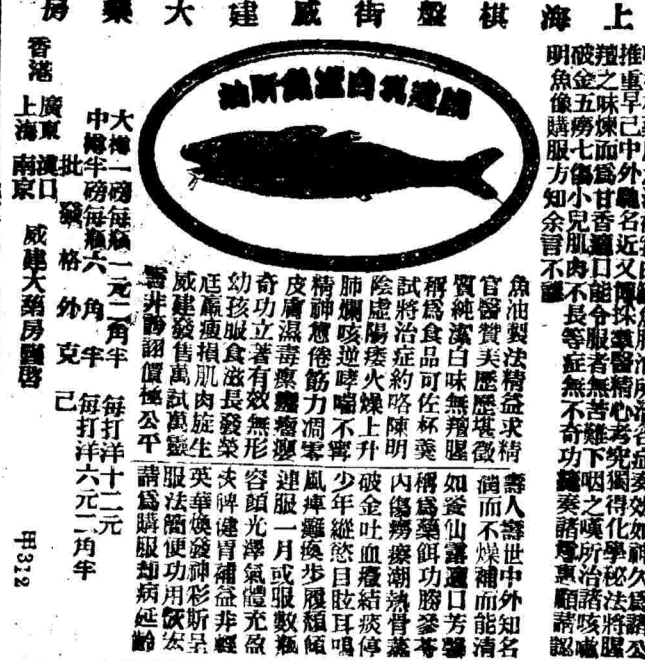 上海棋盤街威建大藥房
魚肝油所治各症奏效如神久爲諸公
推重早已中外馳名近又博採羣醫精心考究獨得化學秘法將腥
羶之味煉而爲甘香適口能令服者無苦難下咽之嘆所治諸咳嗽
破金五癆七傷小兒肌肉不長等症無不奇功疊奏諸尊惠顧請認
明魚像購服方知余言不謬
魚油製法精益求精
官醫贊美歷歷堪徵
質純潔白味無羶腥
稱爲食品可佐杯羹
試將治症約略陳明
陰虛陽痿火燥上升
肺爛咳逆哮喘不寧
精神憊倦筋力凋零
皮膚濕毒瘰癧癭
奇功立著有效無形
幼孩服食滋長發榮
尫羸瘦損肌肉旋生
威建發售萬試萬靈
實非誇詡價極公平
壽人壽世中外知名
溫而不燥補而能清
如餐仙露適口芳馨
稱爲藥餌功勝參苓
內傷癆瘵潮熱骨蒸
破金吐血癥結痰停
少年縱慾目眩耳鳴
風痺癱瘓步履頹傾
連服一月或服數瓶
容顏光澤氣體充盈
扶脾健胃補益非輕
英華煥發神彩斯呈
服法簡便功用恢宏
請爲購服却病延齡
大樽一磅每瓶一元二角半 每打洋十二元
中樽半磅每瓶六角半 每打洋六元二角半
批發格外克己
香港 廣東 漢口
上海 南京 威建大藥房謹啓
甲312